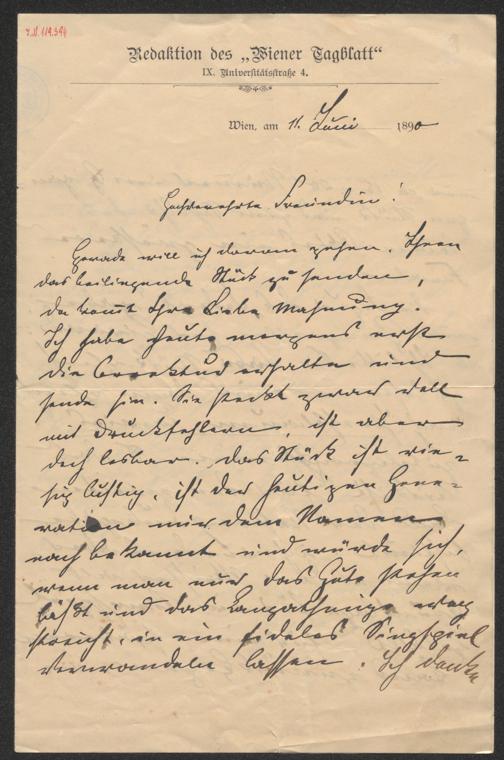 I.N. 119.394
Redaktion des „Wiener Tagblatt“
IX. Universitätsstraße 4.
Wien, am 11. Juni 1890
Hochverehrte Freundin!
Gerade will ich daran gehen, Ihnen
das beiliegende Stück zu senden,
da kommt Ihre liebe Mahnung.
Ich habe heute morgens erst
die Correktur erhalten und
sende sie. Sie steckt zwar voll
mit Druckfehlern, ist aber
doch lesbar. Das Stück ist rie-
sig lustig, ist der heutigen Gene-
ration nur dem Namen
nach bekannt und würde sich,
wenn man nur das Gute stehen
läßt und das Langathmige weg
streicht, in ein fideles Singspiel
verwandeln lassen. Ich danke